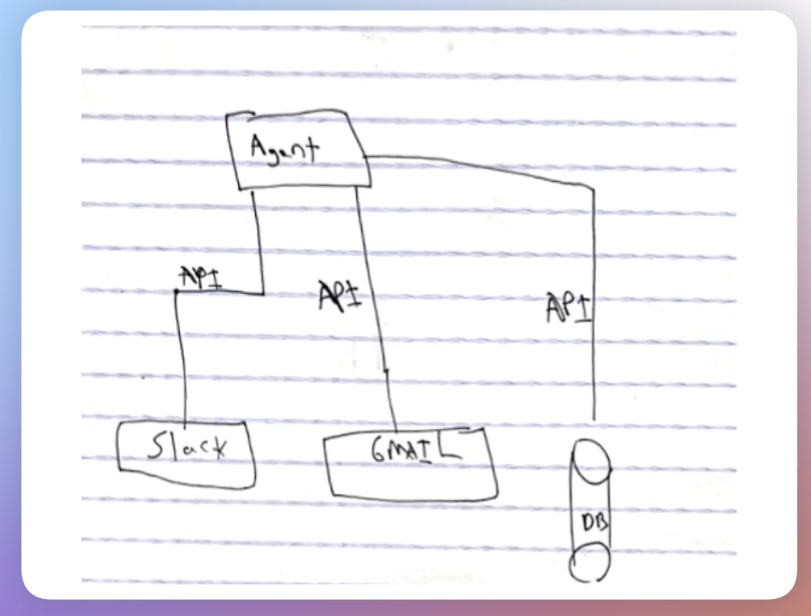 Agent
API
API
API
Slack
GMAIL
DB